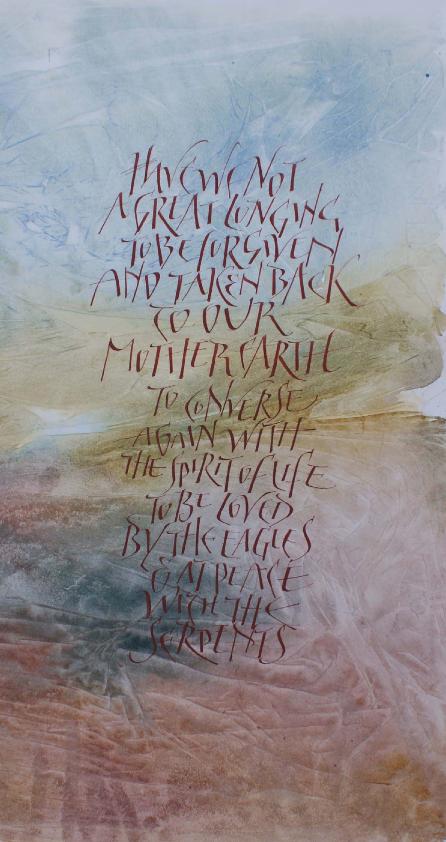 HAVE WE NOT
A GREAT LONGING
TO BE FORGIVEN
AND TAKEN BACK
TO OUR
MOTHER EARTH
TO CONVERSE
AGAIN WITH
THE SPIRIT OF LIFE
TO BE LOVED
BY THE EAGLES
& AT PEACE
WITH THE
SERPENTS